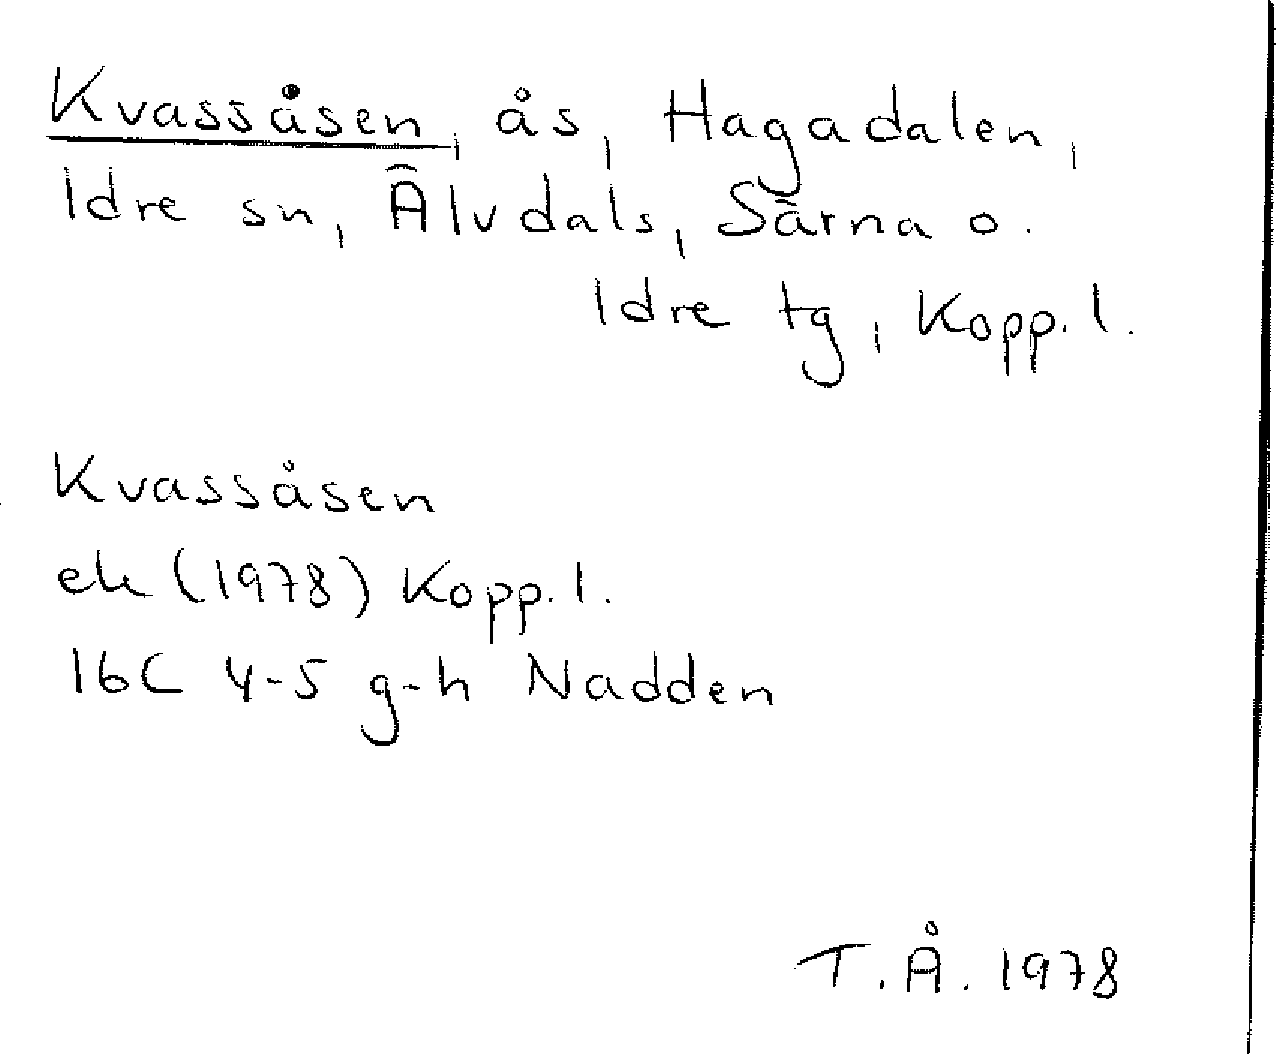 Kvassåsen, ås, Hagadalen,
Idre sn, Älvdals, Särna o.
Idre tg, Kopp. l.
Kvassåsen
ek (1978) Kopp. l.
16C 4-5 g-h Nadden
T. Å. 1978